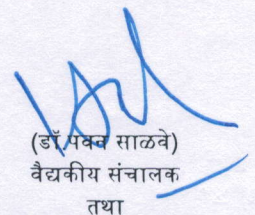 (डॉ. पवन साळवे)
वैद्यकीय संचालक
तथा